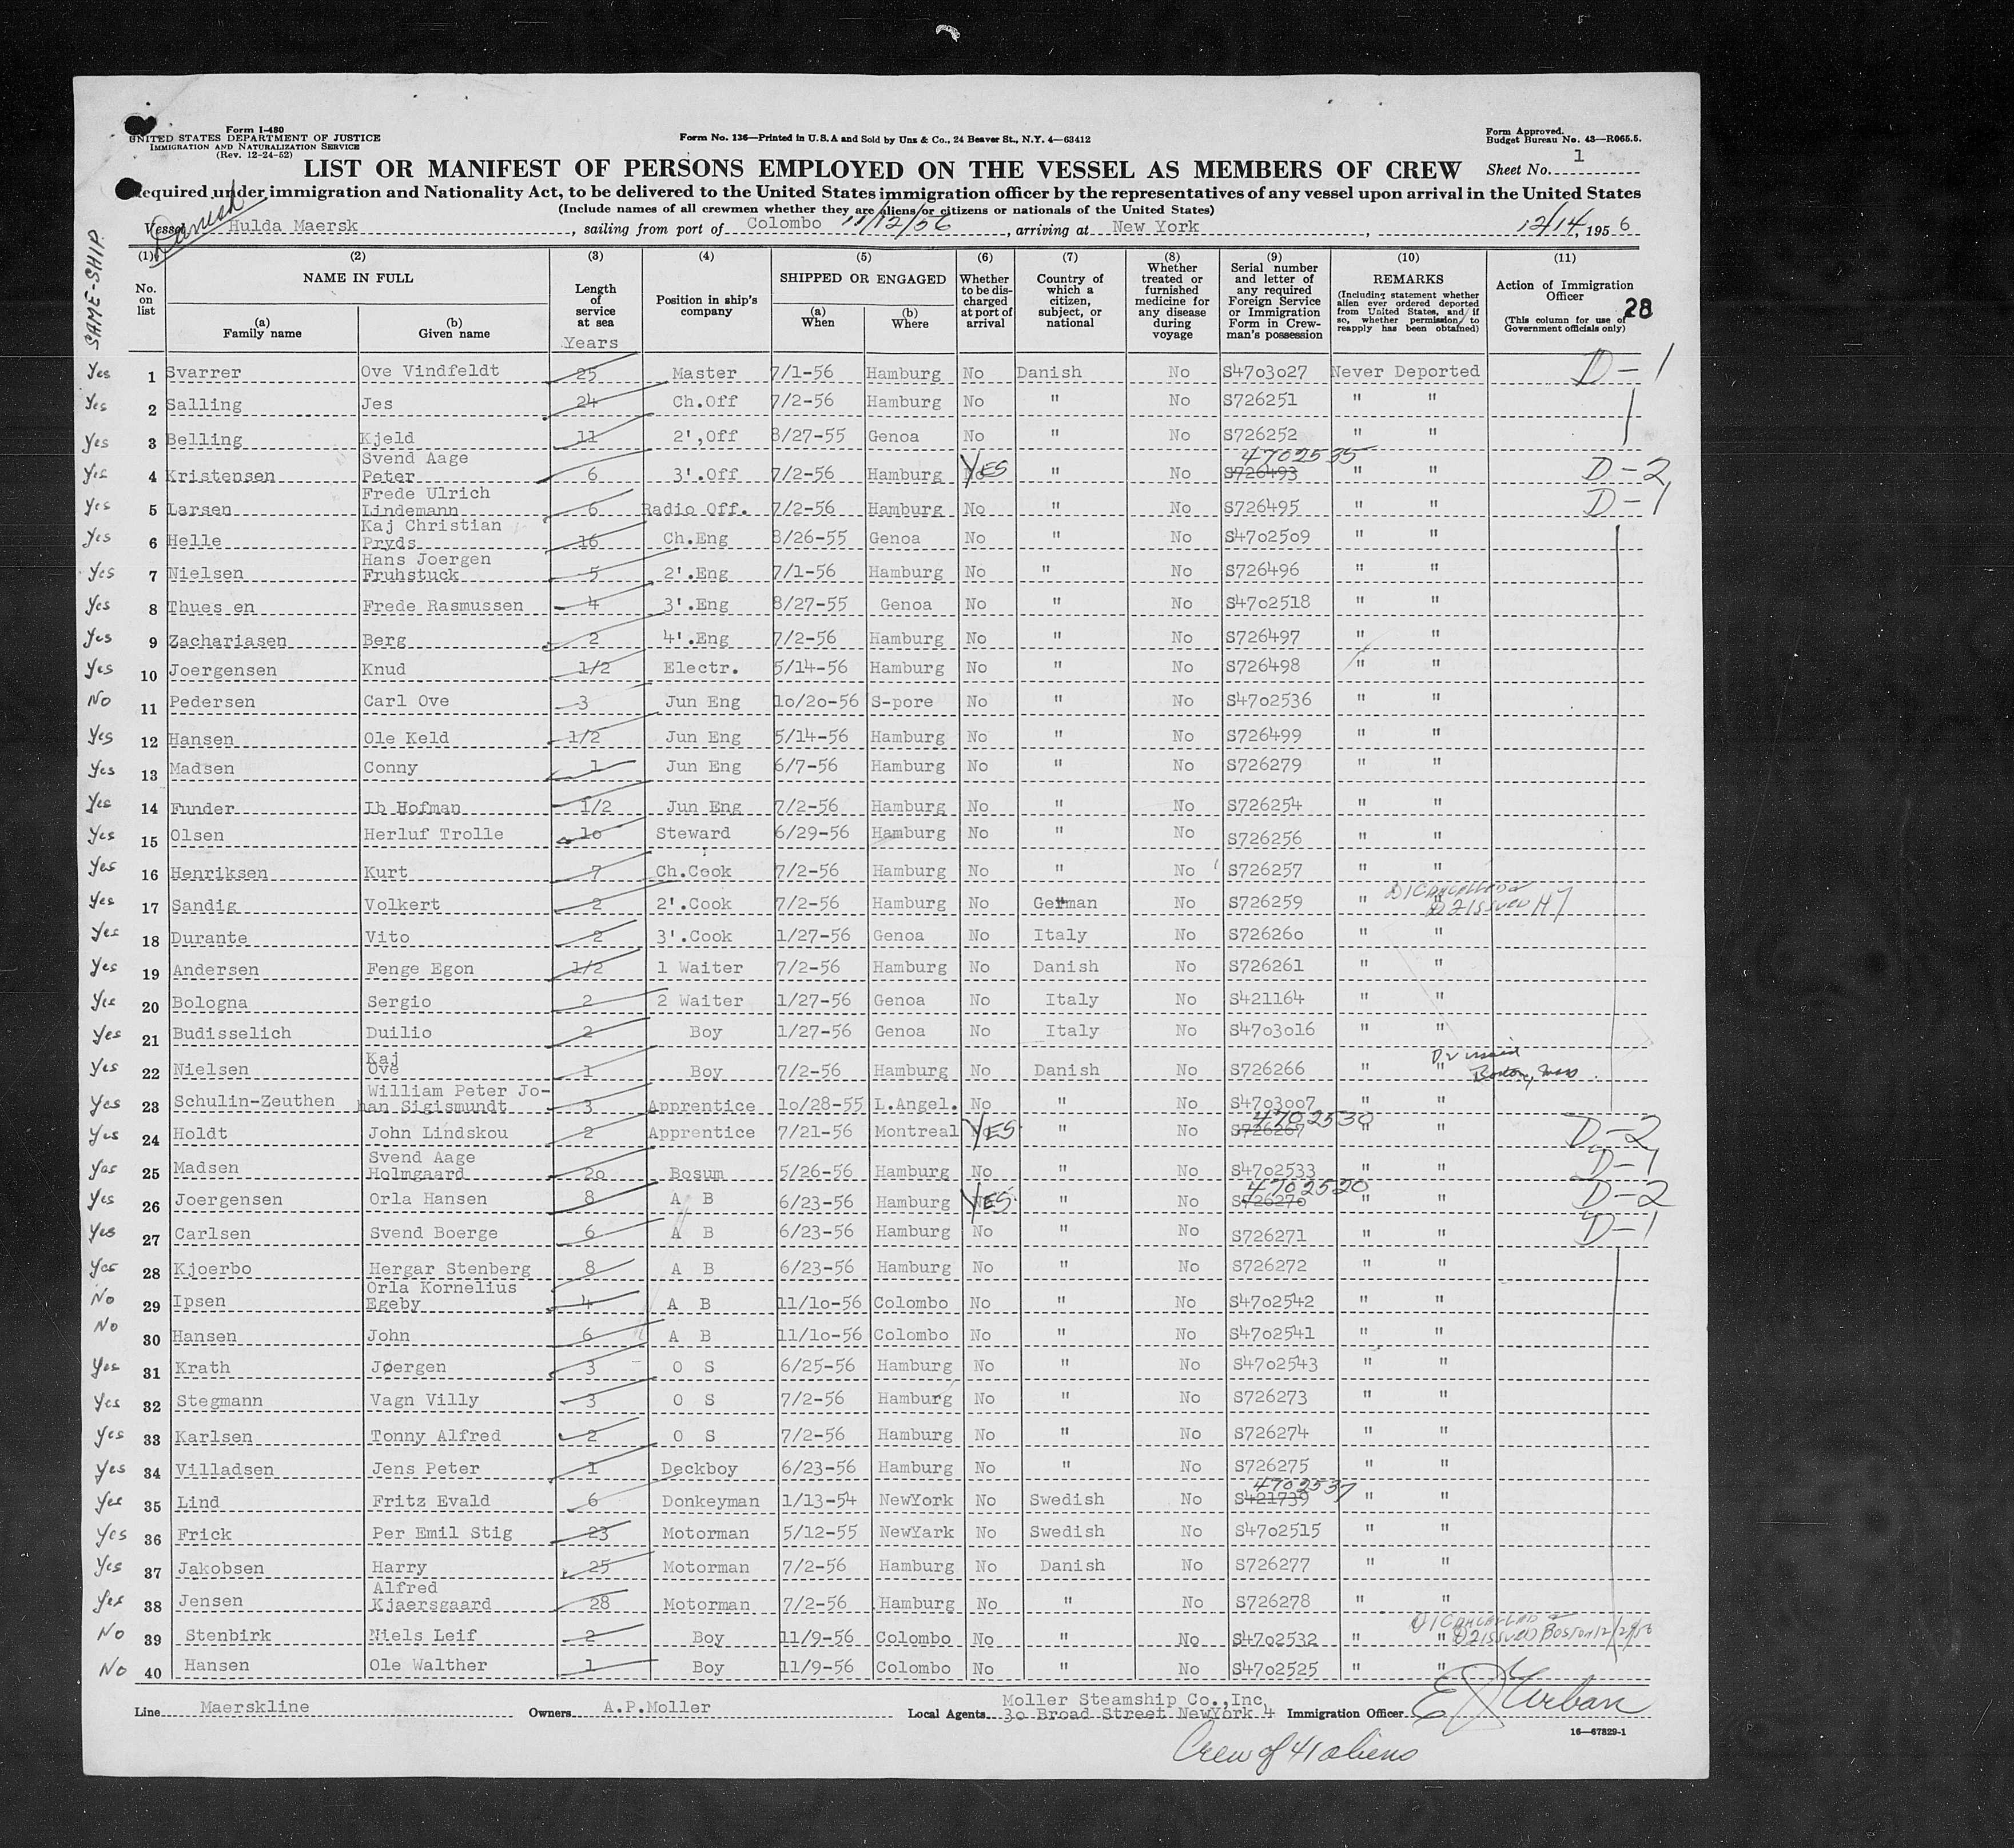 Form I-480
UNITED STATES DEPARTMENT OF JUSTICE
IMMIGRATION AND NATURALIZATION SERVICE
(Rev. 12-24-52)
Form No. 136—Printed in U.S.A and Sold by Unz & Co., 24 Beaver St., N.Y. 4—63412
Form Approved.
Budget Bureau No. 43—R065.5.
LIST OR MANIFEST OF PERSONS EMPLOYED ON THE VESSEL AS MEMBERS OF CREW
Sheet No. 1
Required under immigration and Nationality Act, to be delivered to the United States immigration officer by the representatives of any vessel upon arrival in the United States
(Include names of all crewmen whether they are aliens or citizens or nationals of the United States)
Danish
Vessel Hulda Maersk, sailing from port of Colombo 11/12/56, arriving at New York, 12/14, 1956
SAME-SHIP
(1) No. on list
(2) NAME IN FULL
(a) Family name
(b) Given name
(3) Length of service at sea
Years
(4) Position in ship's company
(5) SHIPPED OR ENGAGED
(a) When
(b) Where
(6) Whether to be discharged at port of arrival
(7) Country of which a citizen, subject, or national
(8) Whether treated or furnished medicine for any disease during voyage
(9) Serial number and letter of any required Foreign Service or Immigration Form in Crewman's possession
(10) REMARKS
(Including statement whether alien ever ordered deported from United States, and if so, whether permission to reapply has been obtained)
(11) Action of Immigration Officer
(This column for use of Government officials only)
28
Yes 1 Svarrer Ove Vindfeldt 25 Master 7/1-56 Hamburg No Danish No S4703027 Never Deported D-1
Yes 2 Salling Jes 24 Ch.Off 7/2-56 Hamburg No " No S726251 " "
Yes 3 Belling Kjeld 11 2',Off 8/27-55 Genoa No " No S726252 " "
Yes 4 Kristensen Svend Aage Peter 6 3'.Off 7/2-56 Hamburg YES " No S726493 4702535 " " D-2
Yes 5 Larsen Frede Ulrich Lindemann 6 Radio Off. 7/2-56 Hamburg No " No S726495 " " D-1
Yes 6 Helle Kaj Christian Pryds 16 Ch.Eng 8/26-55 Genoa No " No S4702509 " "
Yes 7 Nielsen Hans Joergen Fruhstuck 5 2'.Eng 7/1-56 Hamburg No " No S726496 " "
Yes 8 Thues en Frede Rasmussen 4 3'.Eng 8/27-55 Genoa No " No S4702518 " "
Yes 9 Zachariasen Berg 2 4'.Eng 7/2-56 Hamburg No " No S726497 " "
Yes 10 Joergensen Knud 1/2 Electr. 5/14-56 Hamburg No " No S726498 " "
No 11 Pedersen Carl Ove 3 Jun Eng 10/20-56 S-pore No " No S4702536 " "
Yes 12 Hansen Ole Keld 1/2 Jun Eng 5/14-56 Hamburg No " No S726499 " "
Yes 13 Madsen Conny 1 Jun Eng 6/7-56 Hamburg No " No S726279 " "
Yes 14 Funder Ib Hofman 1/2 Jun Eng 7/2-56 Hamburg No " No S726254 " "
Yes 15 Olsen Herluf Trolle 10 Steward 6/29-56 Hamburg No " No S726256 " "
Yes 16 Henriksen Kurt 7 Ch.Cook 7/2-56 Hamburg No " No S726257 " "
Yes 17 Sandig Volkert 2 2'.Cook 7/2-56 Hamburg No German No S726259 " " D1 CANCELLED D2 ISSUED
Yes 18 Durante Vito 2 3'.Cook 1/27-56 Genoa No Italy No S726260 " "
Yes 19 Andersen Fenge Egon 1/2 1 Waiter 7/2-56 Hamburg No Danish No S726261 " "
Yes 20 Bologna Sergio 2 2 Waiter 1/27-56 Genoa No Italy No S421164 " "
Yes 21 Budisselich Duilio 2 Boy 1/27-56 Genoa No Italy No S4703016 " "
Yes 22 Nielsen Kaj Ove 1 Boy 7/2-56 Hamburg No Danish No S726266 " " D2 issued Boston, Mass.
Yes 23 Schulin-Zeuthen William Peter Johan Sigismundt 3 Apprentice 10/28-55 L.Angel. No " No S4703007 " "
Yes 24 Holdt John Lindskou 2 Apprentice 7/21-56 Montreal YES " No S726267 4702530 " " D-2
Yes 25 Madsen Svend Aage Holmgaard 20 Bosum 5/26-56 Hamburg No " No S4702533 " " D-1
Yes 26 Joergensen Orla Hansen 8 A B 6/23-56 Hamburg YES " No S726270 4702520 " " D-2
Yes 27 Carlsen Svend Boerge 6 A B 6/23-56 Hamburg No " No S726271 " " D-1
Yes 28 Kjoerbo Hergar Stenberg 8 A B 6/23-56 Hamburg No " No S726272 " "
No 29 Ipsen Orla Kornelius Egeby 4 A B 11/10-56 Colombo No " No S4702542 " "
No 30 Hansen John 6 A B 11/10-56 Colombo No " No S4702541 " "
Yes 31 Krath Jøergen 3 O S 6/25-56 Hamburg No " No S4702543 " "
Yes 32 Stegmann Vagn Villy 3 O S 7/2-56 Hamburg No " No S726273 " "
Yes 33 Karlsen Tonny Alfred 2 O S 7/2-56 Hamburg No " No S726274 " "
Yes 34 Villadsen Jens Peter 1 Deckboy 6/23-56 Hamburg No " No S726275 " "
Yes 35 Lind Fritz Evald 6 Donkeyman 1/13-54 NewYork No Swedish No S421739 4702537 " "
Yes 36 Frick Per Emil Stig 23 Motorman 5/12-55 NewYark No Swedish No S4702515 " "
Yes 37 Jakobsen Harry 25 Motorman 7/2-56 Hamburg No Danish No S726277 " "
Yes 38 Jensen Alfred Kjaersgaard 28 Motorman 7/2-56 Hamburg No " No S726278 " "
No 39 Stenbirk Niels Leif 2 Boy 11/9-56 Colombo No " No S4702532 " " D1 CANCELLED D2 ISSUED BOSTON
No 40 Hansen Ole Walther 1 Boy 11/9-56 Colombo No " No S4702525 " "
Line Maerskline Owners A.P.Moller Local Agents Moller Steamship Co.,Inc 30 Broad Street NewYork 4 Immigration Officer
16—67829-1
Crew of 41 aliens